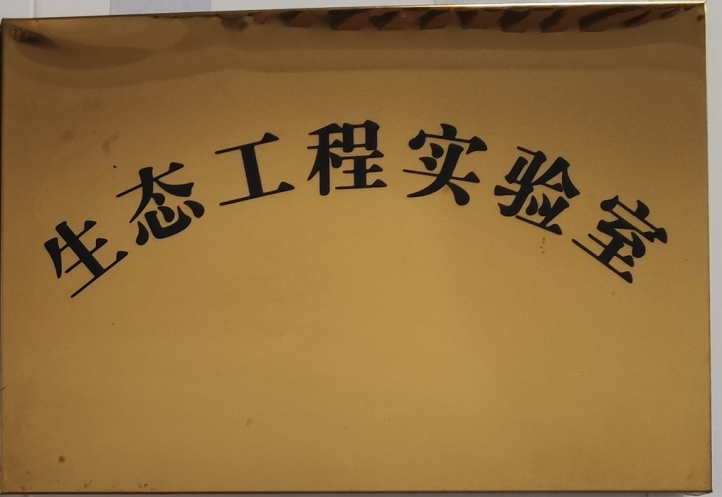 生态工程实验室